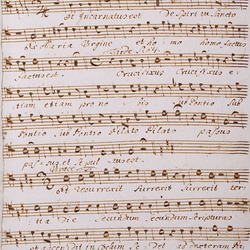 Et Incarnatus est de Spiritu Sancto
ex Maria Virgine et homo homo factus
factus est. Crucifixus Crucifixus e
tiam etiam pro no bis sub Pontio sub
Pontio sub Pontio Pilato Pilato passus
passus, et sepul tus est.
et Resurrexit surrexit surrexit ter
tia Die secundum secundum scripturas
et ascendit in coelum sedet ad dexteram